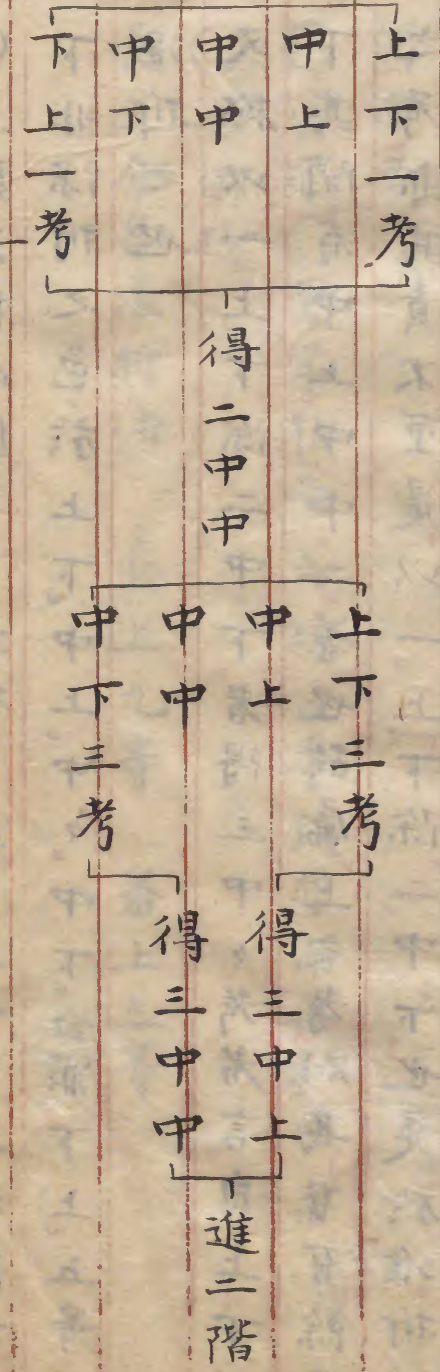 上下一考
中上
中中
中下
下上一考
得二中中
上下三考
中上
中中
中下三考
得三中上
得三中中
進二階